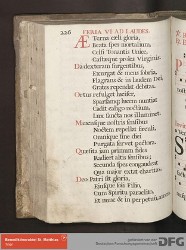 226 FERIA VI AD LAUDES.
Æterna cœli gloria,
Beata spes mortalium,
Celsi Tonantis Unice,
Castæque proles Virginis.
Da dexteram surgentibus,
Exurgat & mens sobria,
Flagrans & in laudem Dei
Grates rependat debitas.
Ortus refulget lucifer,
Sparsamque lucem nuntiat
Cadit caligo noctium,
Lux sancta nos illuminet.
Manensque nostris sensibus
Noctem repellat sæculi,
Omnique fine diei
Purgata servet pectora.
Quæsita jam primum fides
Radicet altis sensibus;
Secunda spes congaudeat
Qua major extat charitas.
Deo Patri sit gloria,
Ejusque soli Filio,
Cum Spiritu paraclito,
Et nunc & in perpetuum.